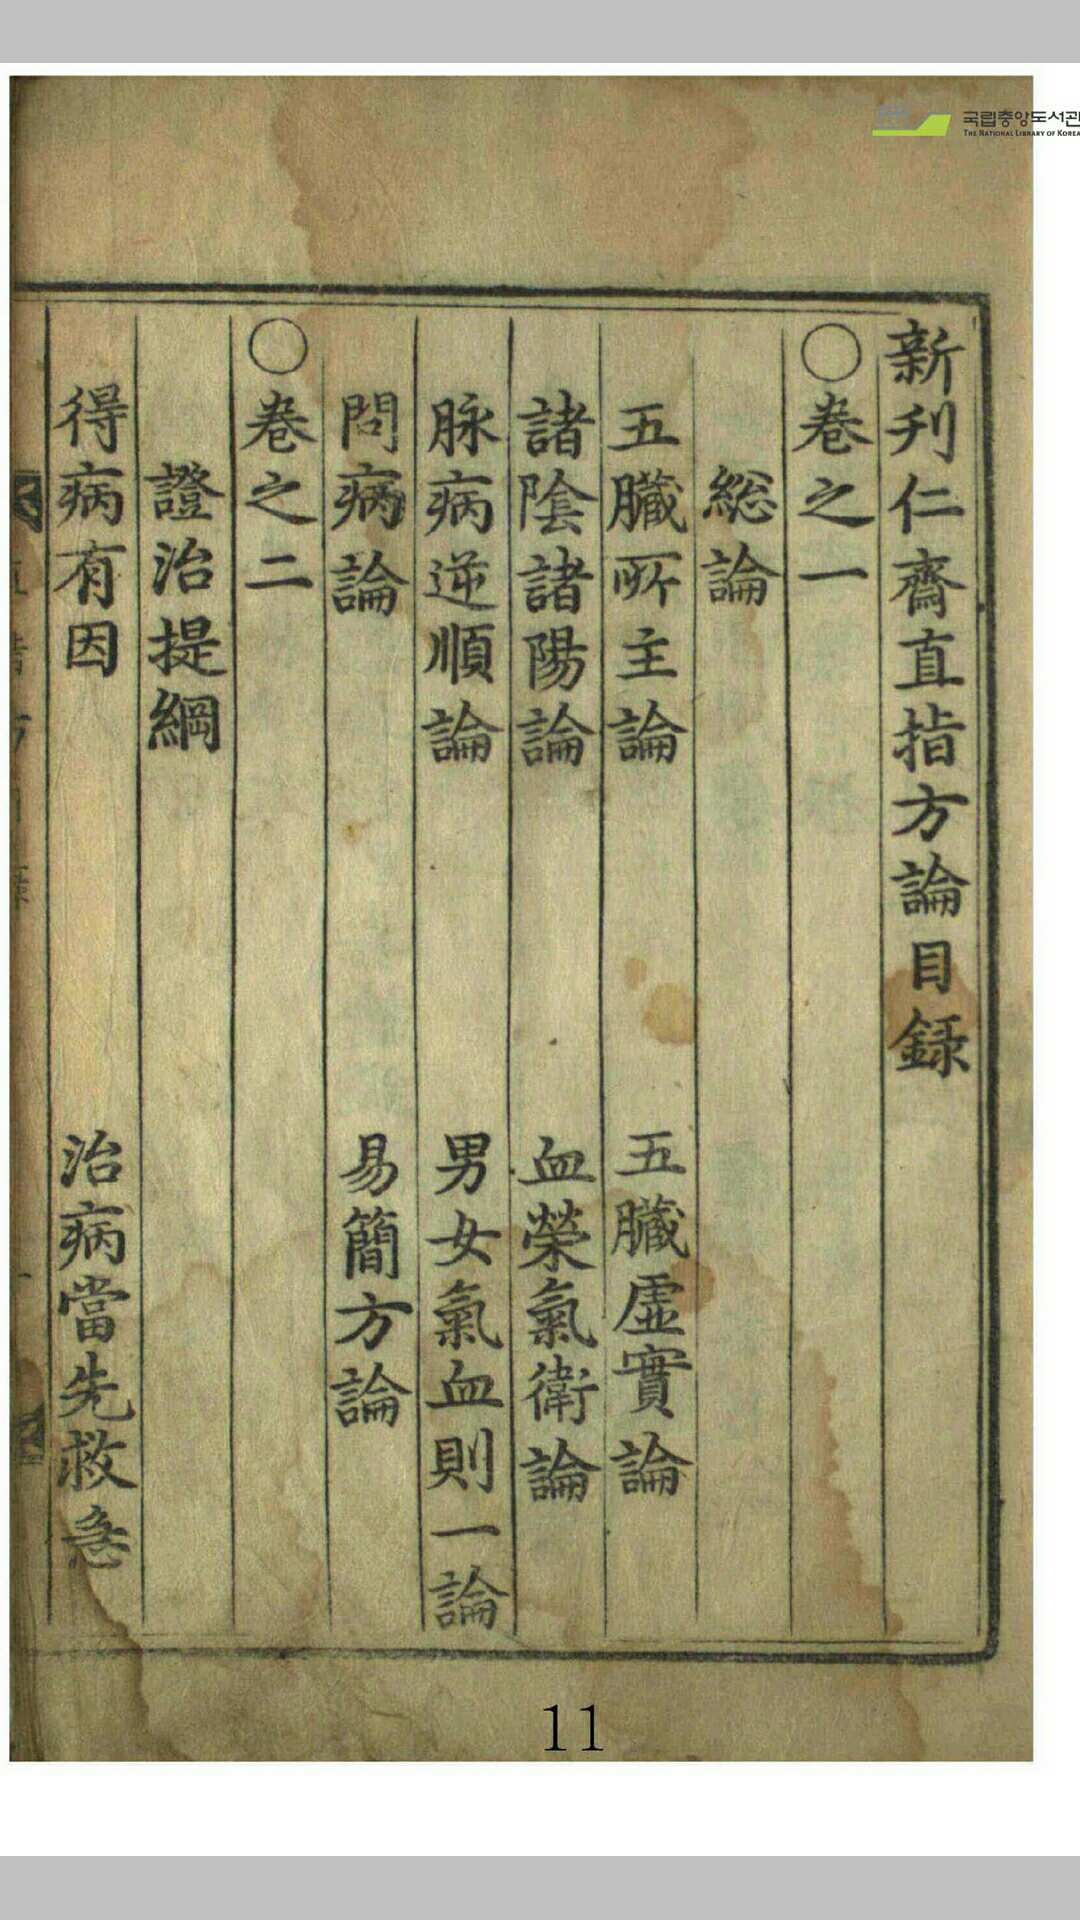 국립중앙도서관
THE NATIONAL LIBRARY OF KOREA
新刋仁齋直指方論目録
○卷之一
総論
五臟所主論 五臟虛實論
諸陰諸陽論 血榮氣衛論
脉病逆順論 男女氣血則一論
問病論 易簡方論
○卷之二
證治提綱
得病有因 治病當先救急
11